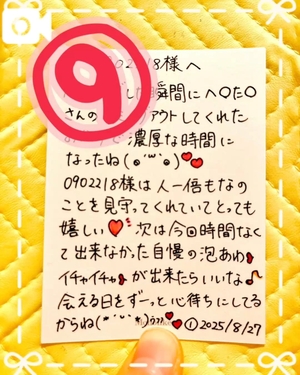 ⑨
0902218様へ
した瞬間にへ〇た〇
さんの アウトしてくれた
で濃厚な時間に
なったね(๑´ω`๑)♥♥
0902218様は人一倍もなの
ことを見守ってくれていてとっても
嬉しい♥次は今回時間なく
て出来なかった自慢の泡あわ♥
イチャイチャ♥が出来たらいいな♪
会える日をずーっと心待ちにしてる
からね(*´ω`*)ﾗﾗﾗ♥♥①2025/8/27